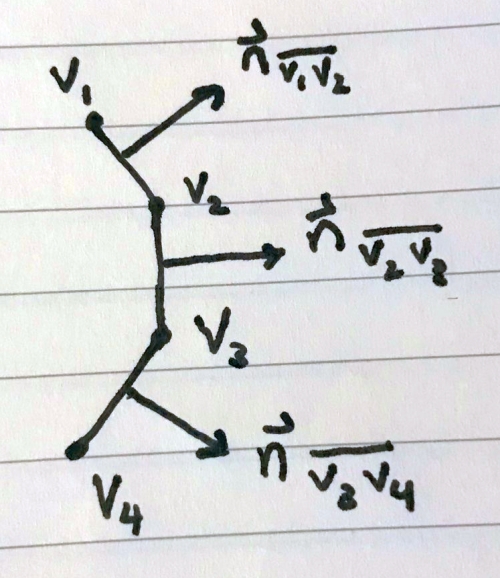 V₁
n⃗ V₁V₂
V₂
n⃗ V₂V₃
V₃
n⃗ V₃V₄
V₄